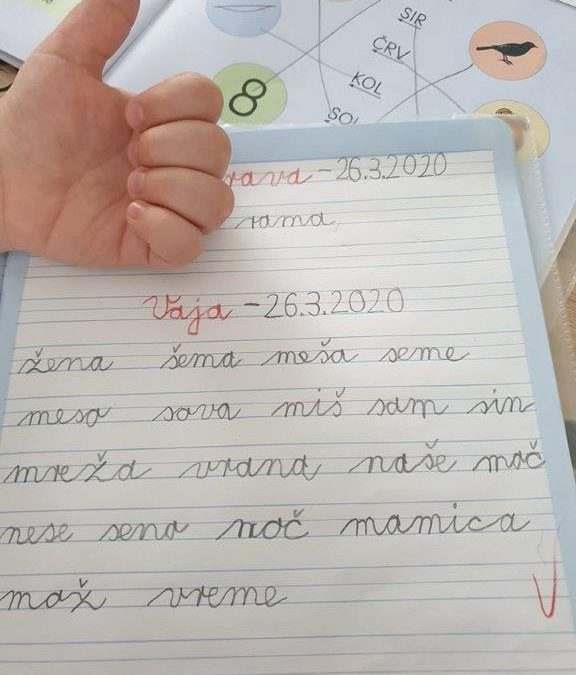 SIR
ČRV
KOL
8
SOL
rava - 26.3.2020
rama
Vaja - 26.3.2020
žena šema meša seme
meso sova miš sam sin
mreža vrana naše moč
nese seno noč mamica
mož vreme